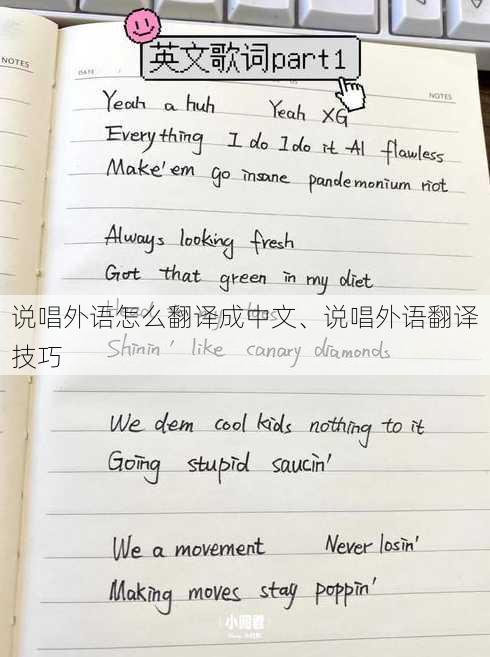 英文歌词part1
NOTES
DATE
NOTES
Yeah a huh Yeah XG
Everything I do I do it A1 flawless
Make'em go insane pandemonium riot
Always looking fresh
Got that green in my diet
说唱外语怎么翻译成中文、说唱外语翻译
技巧
Shinin' like canary diamonds
We dem cool kids nothing to it
Going stupid saucin'
We a movement Never losin'
Making moves stay poppin'